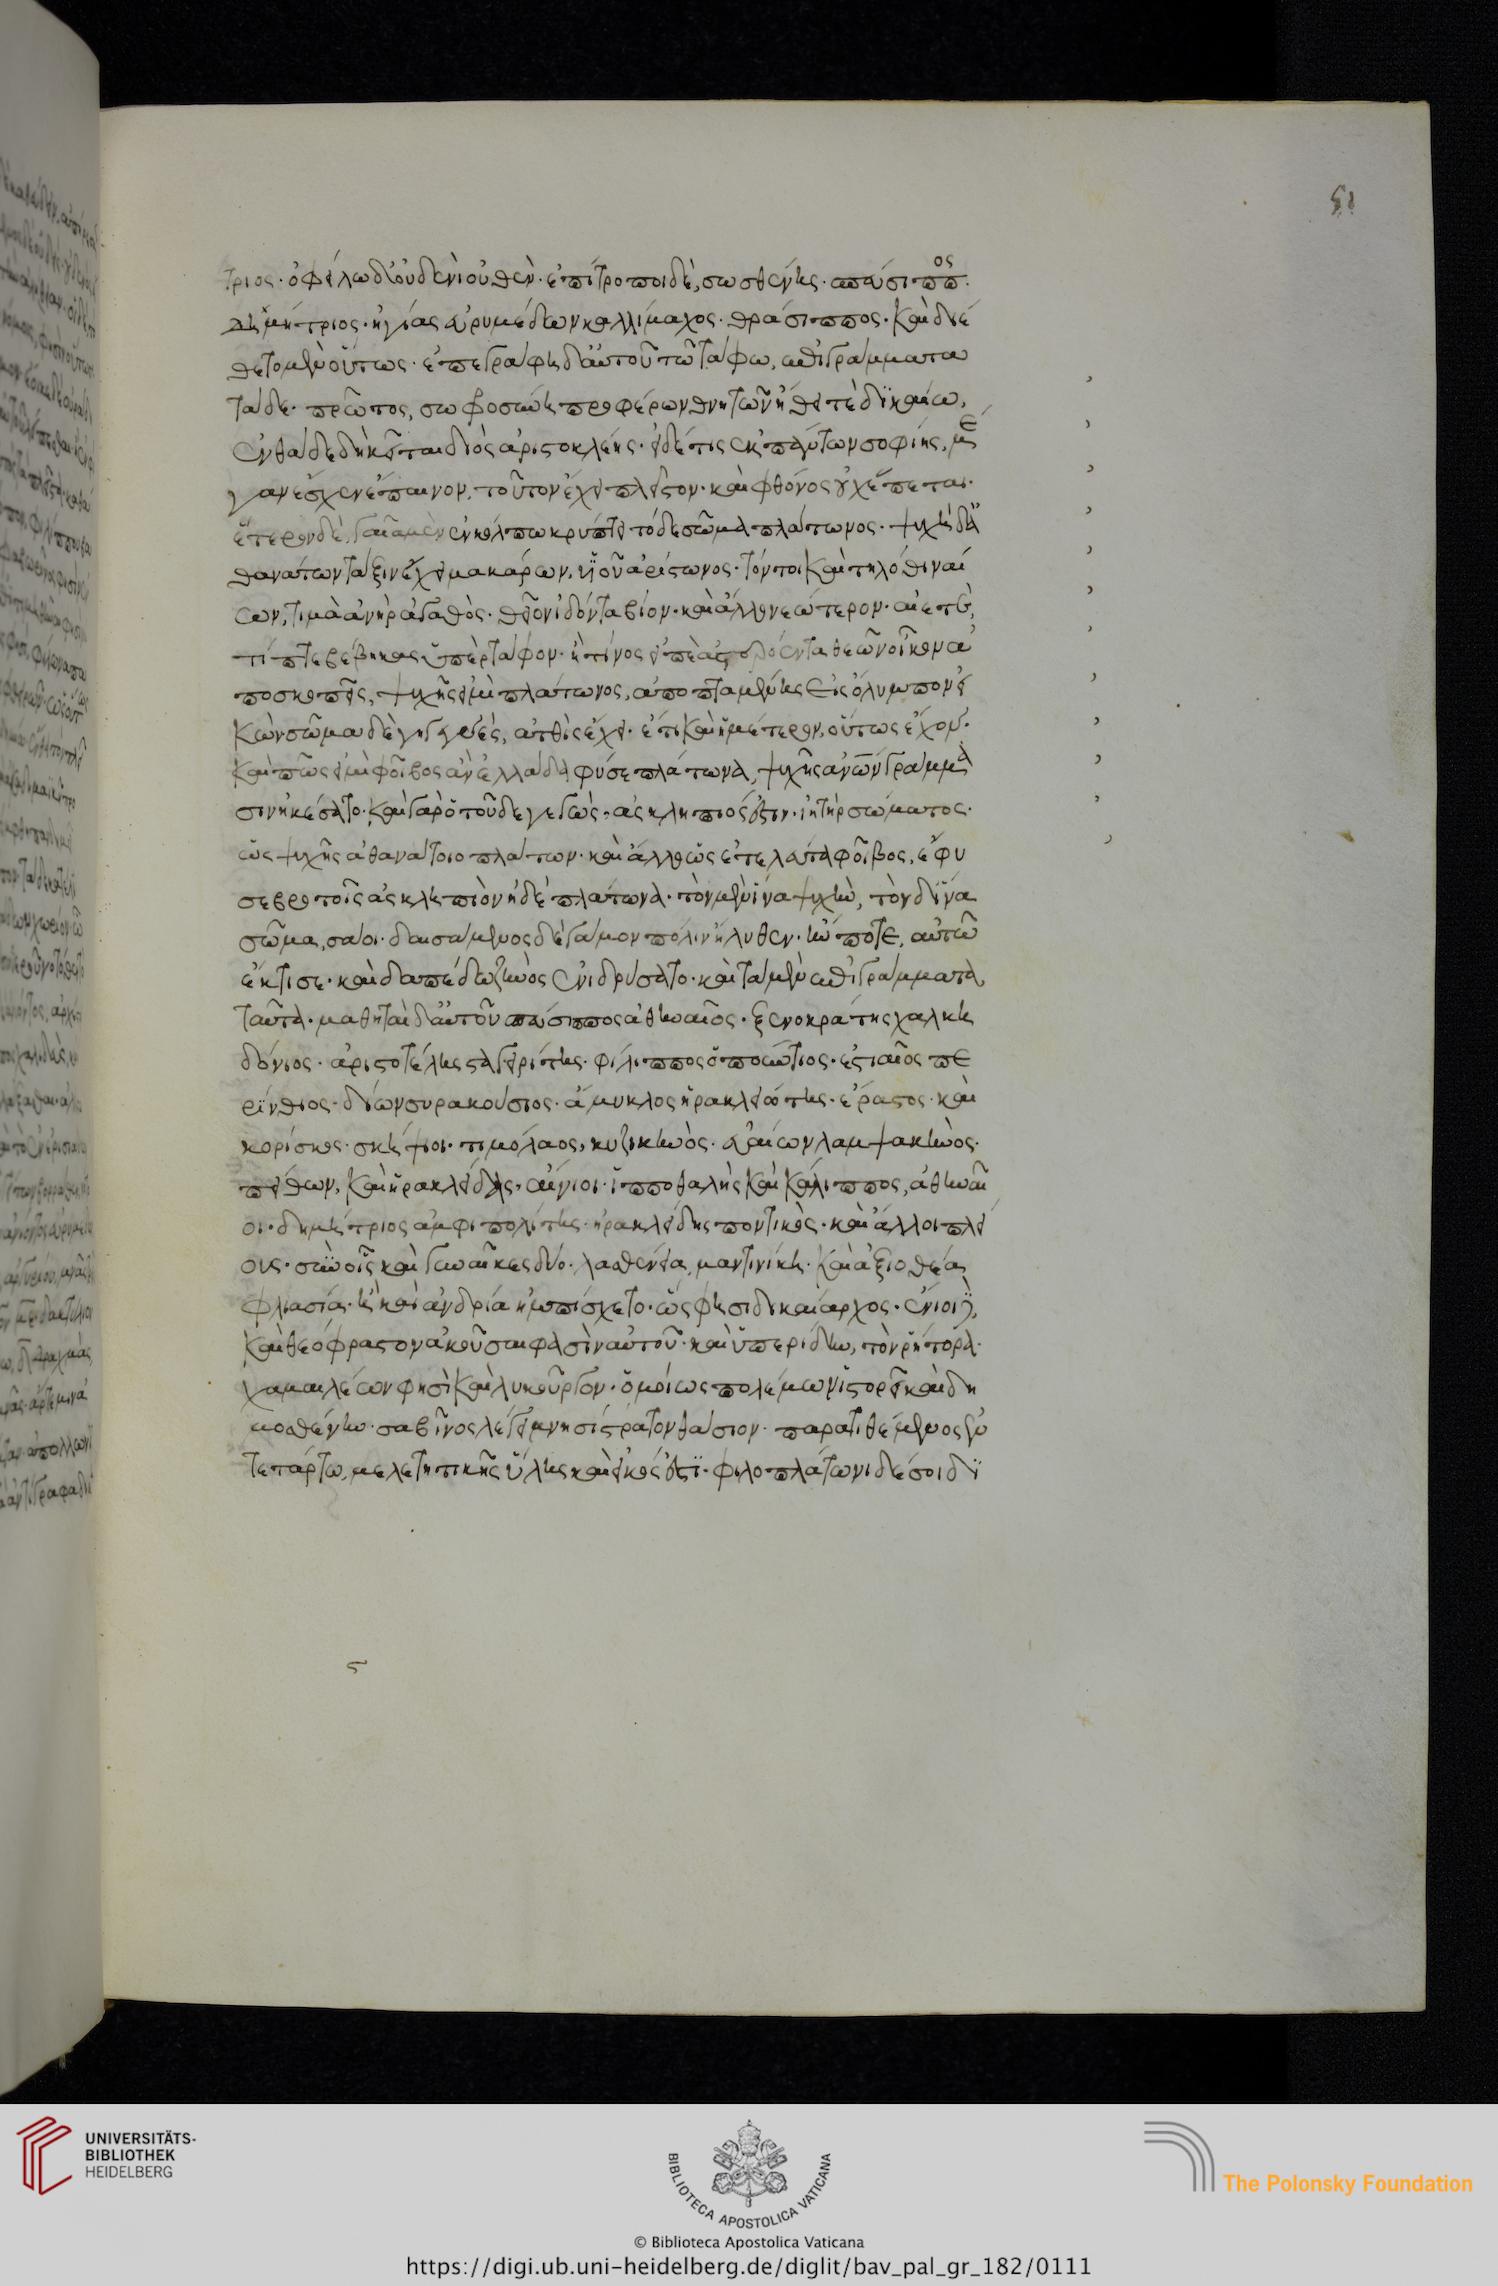 51
τριος· ὀφείλω δ' οὐδενὶ οὐθὲν· ἐπίτροποι δὲ, σωσθένης· σπεύσιππος·
δημήτριος· ἡγίας εὐρυμέδων καλλίμαχος· θράσιππος· καὶ διέ
θετο μὲν οὕτως· ἐπεγράφη δ' αὐτοῦ τῶ τάφω, ἐπιγράμματα
τάδε· πρῶτος, σωφροσύνη προφέρων θνητῶν ἤθει τὲ δικαίω,
ἐνθάδε δὴ κεῖται διὸς ἀριστοκλέης· εἰ δέ τις ἐκ πάντων σοφίης, μέ
γαν ἔσχεν ἔπαινον, τοῦτον ἔχει πλεῖστον· καὶ φθόνος οὐχ ἕπεται·
ἕτερον δὲ, γαῖα μὲν ἐν κόλπω κρύπτει τόδε σῶμα πλάτωνος· ψυχὴ δ' ἀ
θανάτων τάξιν ἔχει μακάρων, υἱοῦ ἀρίστωνος· τόν τοι καὶ τηλόθι ναί
ων, τιμᾶ ἀνὴρ ἀγαθὸς· θεῖον ἰδόντα βίον· καὶ ἄλλο νεώτερον· αἰετὲ,
τίπτε βέβηκας ὑπὲρ τάφον· ἢ τίνος εἰπὲ ἀστερόεντα θεῶν οἶκον ἀ
ποσκοπεῖς, ψυχῆς εἰμὶ πλάτωνος, ἀποπταμένης εἰς ὄλυμπον εἰ
κὼν σῶμα δὲ γῆ γηγενὲς, ἀτθὶς ἔχει· ἔστι καὶ ἡμέτερον, οὕτως ἔχον·
καὶ πῶς εἰ μὴ φοῖβος ἀν' ἑλλάδα φῦσε πλάτωνα, ψυχῆς ἀνων γράμμα
σιν ἠκέσατο· καὶ γὰρ ὁ τοῦδε γεγὼς, ἀσκληπιός ἐστιν· ἰητὴρ σώματος·
ὡς ψυχῆς ἀθανάτοιο πλάτων· καὶ ἄλλο ὡς ἐτελεύτα φοῖβος, ἔφυ
σε βροτοῖς ἀσκληπιὸν ἠδὲ πλάτωνα· τὸν μὲν ἵνα ψυχὴν, τὸν δ' ἵνα
σῶμα, σάοι· δαισάμενος δὲ γάμον πόλιν ἤλυθεν· ἥν ποτε, αὐτῶ
ἔκτισε· καὶ δαπέδω ζηνὸς ἐνιδρύσατο· καὶ τὰ μὲν ἐπιγράμματα,
ταῦτα· μαθηταὶ δ' αὐτοῦ σπεύσιππος ἀθηναῖος· ξενοκράτης χαλκη
δόνιος· ἀριστοτέλης σταγειρίτης· φίλιππος ὁ πούντιος· ἑστιαῖος πε
ρίνθιος· δίων συρακούσιος· ἄμυκλος ἡρακλεώτης· ἔραστος· καὶ
κορίσκος· σκήψιοι· τιμόλαος, κυζικηνὸς· εὐαίων λαμψακηνὸς·
πείθων, καὶ ἡρακλείδης, αἴνιοι· ἱπποθαλὴς καὶ κάλιππος, ἀθηναῖ
οι· δημήτριος ἀμφιπολίτης· ἡρακλείδης ποντικὸς· καὶ ἄλλοι πλεί
ους· σὺν οἷς καὶ γυναῖκες δύο· λασθένεια, μαντινική· καὶ ἀξιοθέα
φλιασία· ἣ καὶ ἀνδρία ἠμπίσχετο· ὥς φησι δικαίαρχος· ἔνιοι δὲ,
καὶ θεόφραστον ἀκοῦσαι φασὶν αὐτοῦ· καὶ ὑπερίδην, τὸν ῥήτορα·
χαμαιλέων φησὶ καὶ λυκοῦργον· ὁμοίως πολέμων ἱστορεῖ καὶ δη
μοσθένην· σαβῖνος λέγει μνησίστρατον θάσιον· παρατιθέμενος ἐν
τετάρτω, μελετητικῆς ὕλης καὶ εἰκός ἐστι· φιλοπλάτωνι δέ σοι δι
ς
UNIVERSITÄTS-
BIBLIOTHEK
HEIDELBERG
BIBLIOTECA APOSTOLICA VATICANA
The Polonsky Foundation
© Biblioteca Apostolica Vaticana
https://digi.ub.uni-heidelberg.de/diglit/bav_pal_gr_182/0111